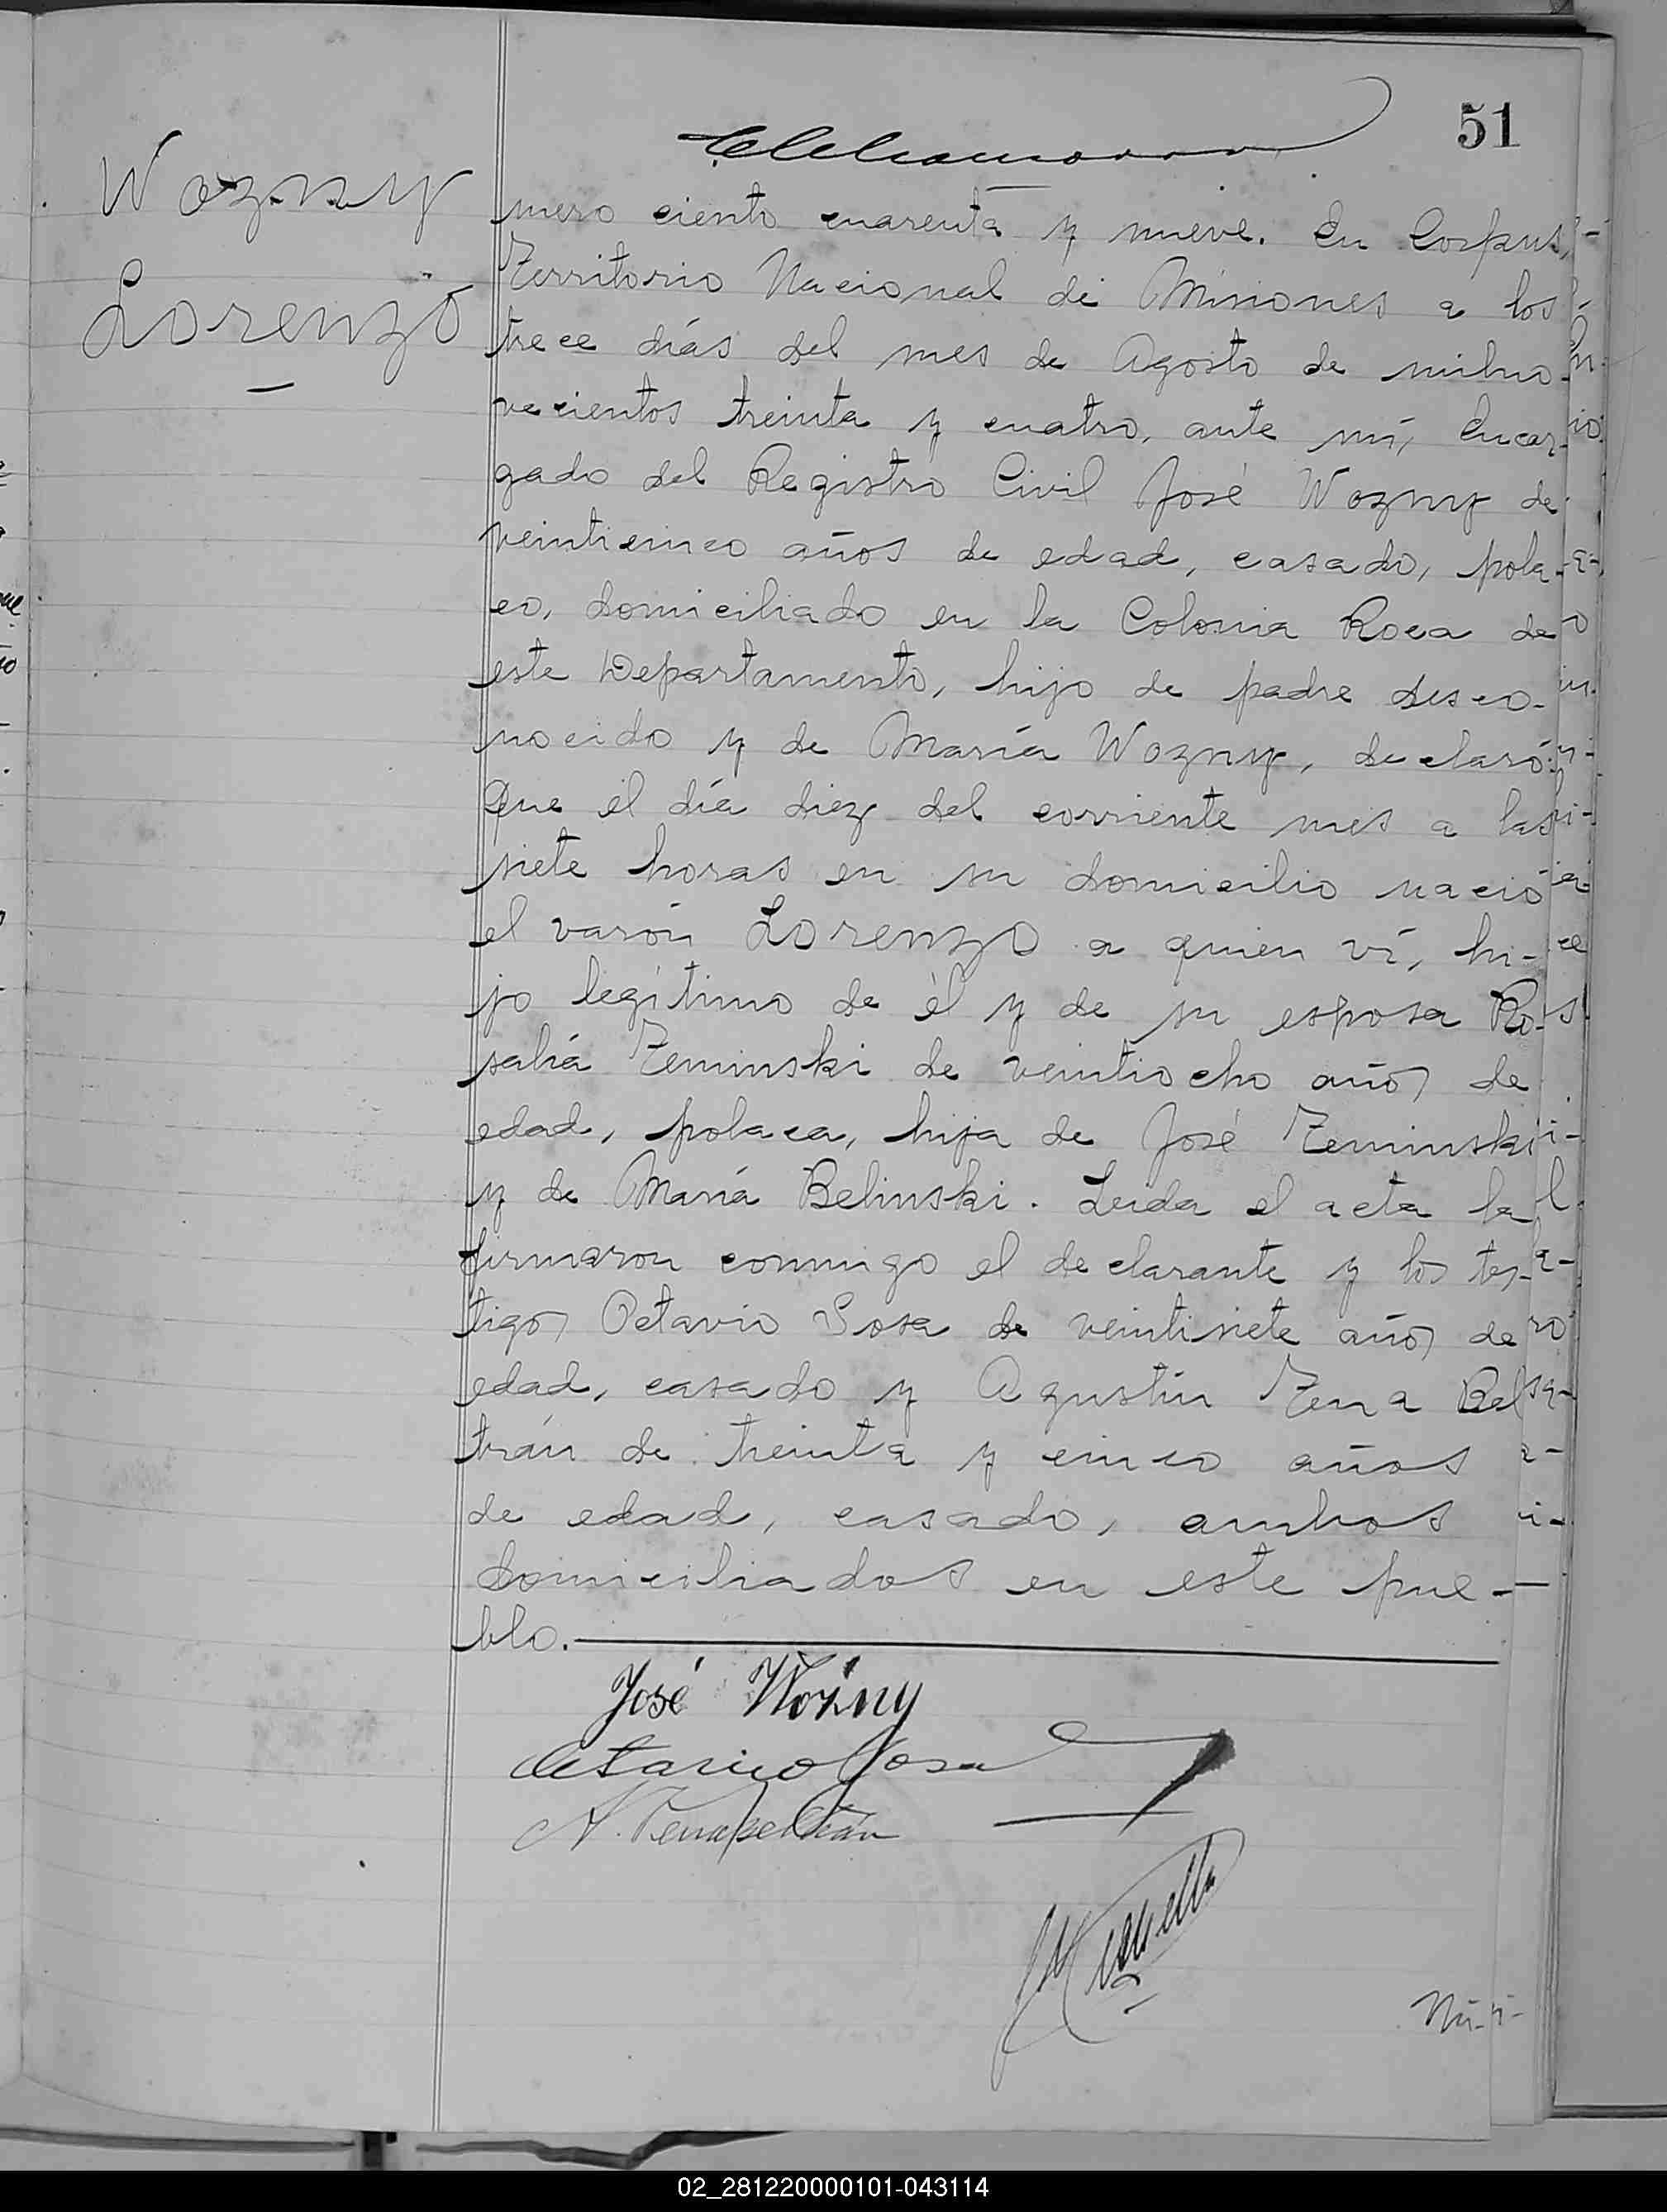 51
Wozny
Lorenzo
mero ciento cuarenta y nueve. En Corpus,
Territorio Nacional de Misiones a los
trece días del mes de Agosto de milno-
vecientos treinta y cuatro, ante mí, Encar-
gado del Registro Civil José Wozny de
veinticinco años de edad, casado, pola-
co, domiciliado en la Colonia Roca de
este Departamento, hijo de padre desco-
nocido y de María Wozny, declaró:
Que el día diez del corriente mes a las
siete horas en su domicilio nació
el varón Lorenzo a quien ví, hi-
jo legítimo de él y de su esposa Ro-
salía Zeminski de veintiocho años de
edad, polaca, hija de José Zeminski
y de María Belinski. Leida el acta la
firmaron conmigo el declarante y los tes-
tigos Octavio Sosa de veintisiete años de
edad, casado y Agustín Zena Bel
trán de treinta y cinco años
de edad, casado, ambos
domiciliados en este pue-
blo.
José Wózny
Octavio Sosa
Nú-
02_281220000101-043114